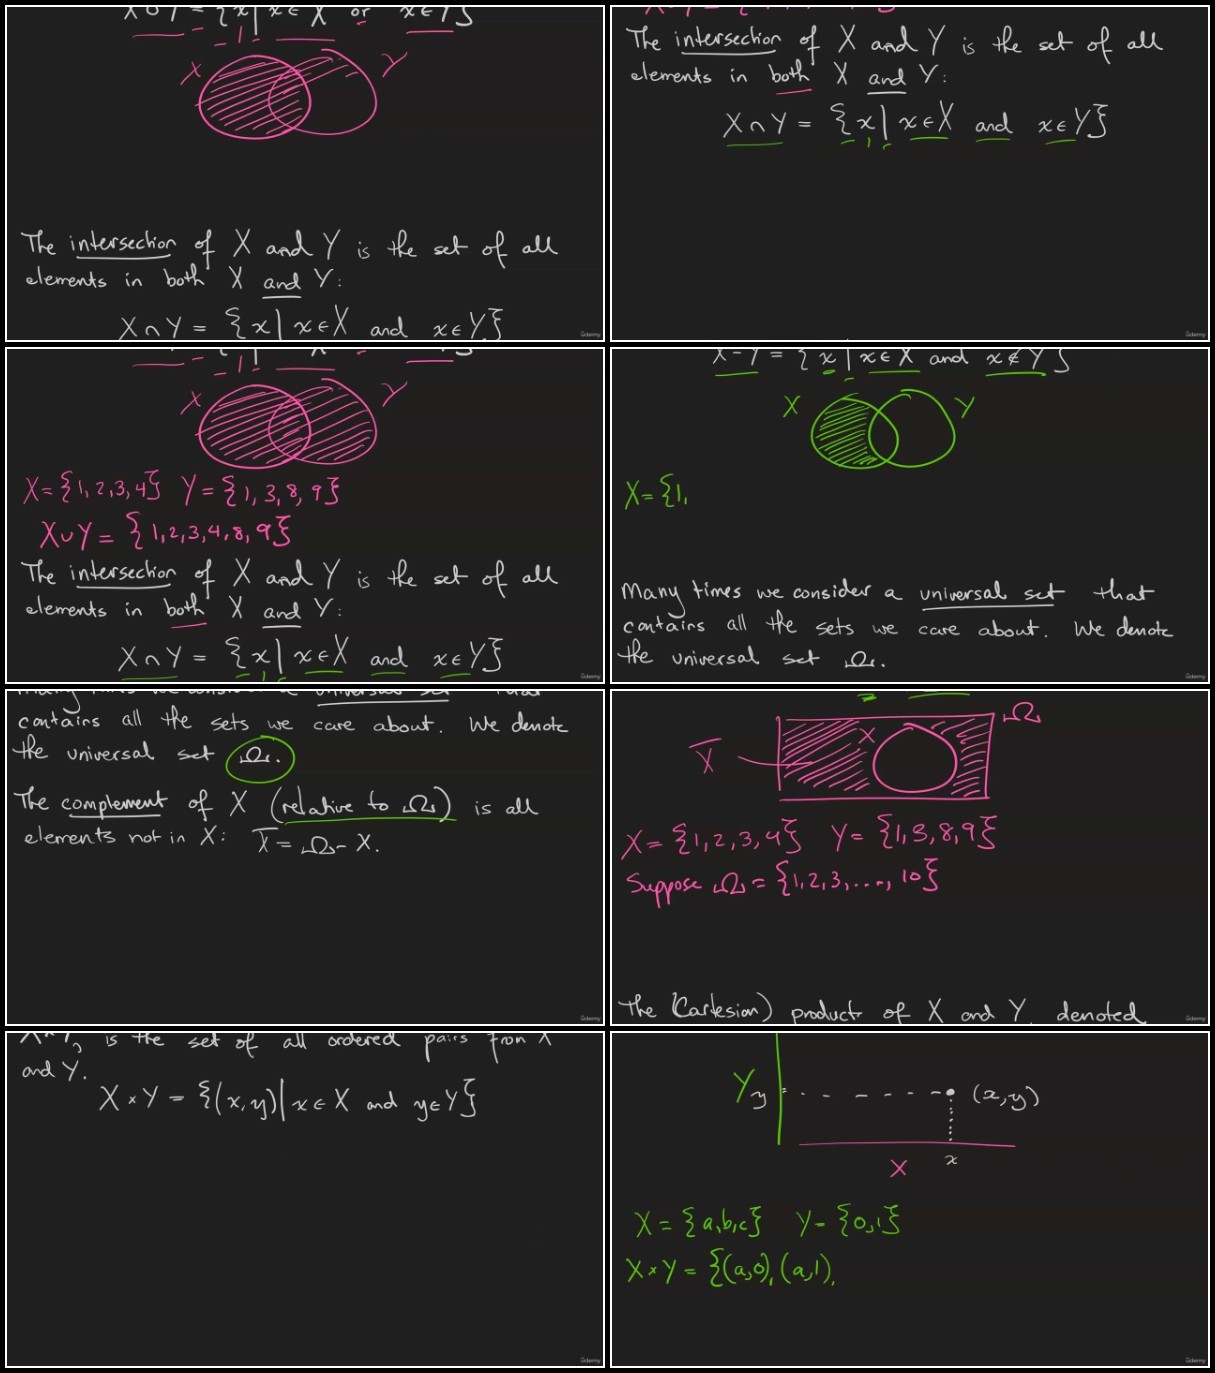 X ∪ Y = { x | x ∈ X or x ∈ Y }
X Y
The intersection of X and Y is the set of all
elements in both X and Y:
X ∩ Y = { x | x ∈ X and x ∈ Y }
Udemy
The intersection of X and Y is the set of all
elements in both X and Y:
X ∩ Y = { x | x ∈ X and x ∈ Y }
Udemy
X Y
X = {1, 2, 3, 4} Y = {1, 3, 8, 9}
X ∪ Y = {1, 2, 3, 4, 8, 9}
The intersection of X and Y is the set of all
elements in both X and Y:
X ∩ Y = { x | x ∈ X and x ∈ Y }
Udemy
X - Y = { x | x ∈ X and x ∉ Y }
X Y
X = {1,
Many times we consider a universal set that
contains all the sets we care about. We denote
the universal set Ω.
Udemy
Many times we consider a universal set that
contains all the sets we care about. We denote
the universal set Ω.
The complement of X (relative to Ω) is all
elements not in X: X̅ = Ω - X.
Udemy
Ω
X̅ X
X = {1, 2, 3, 4} Y = {1, 3, 8, 9}
Suppose Ω = {1, 2, 3, ..., 10}
The (Cartesian) product of X and Y, denoted
Udemy
X × Y, is the set of all ordered pairs from X
and Y.
X × Y = {(x, y) | x ∈ X and y ∈ Y}
Udemy
Y y (x, y)
X x
X = {a, b, c} Y = {0, 1}
X × Y = {(a, 0), (a, 1),
Udemy